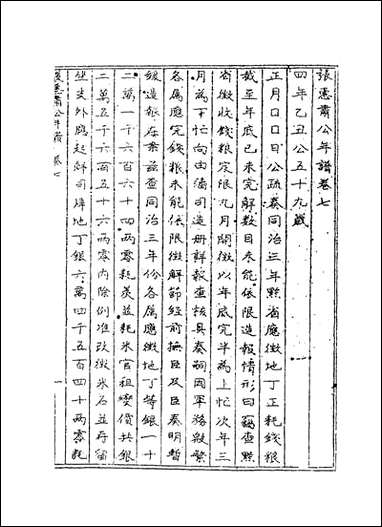 張惠肅公年譜卷七
四年乙丑公五十九歲
正月口口日公疏奏同治三年黔省應徵地丁正耗錢糧
截至年底已未完解數目未能依限造報情形曰竊查黔
省徵收錢糧定限九月開徵以年底完半為上忙次年三
月為下忙向由藩司造册詳報查核具奏嗣因軍務殷繁
各屬應完錢糧未能依限徵解節經前撫臣及臣奏明暫
緩造報在案茲查同治三年份各屬應徵地丁等銀一十
二萬一千六百六十四兩零耗羨並耗米官租變價共銀
二萬五千六百五十六兩零內除例准改徵米石並存留
坐支外應起解司庫地丁銀六萬四千五百四十兩零耗
張惠肅公年譜 卷七
一